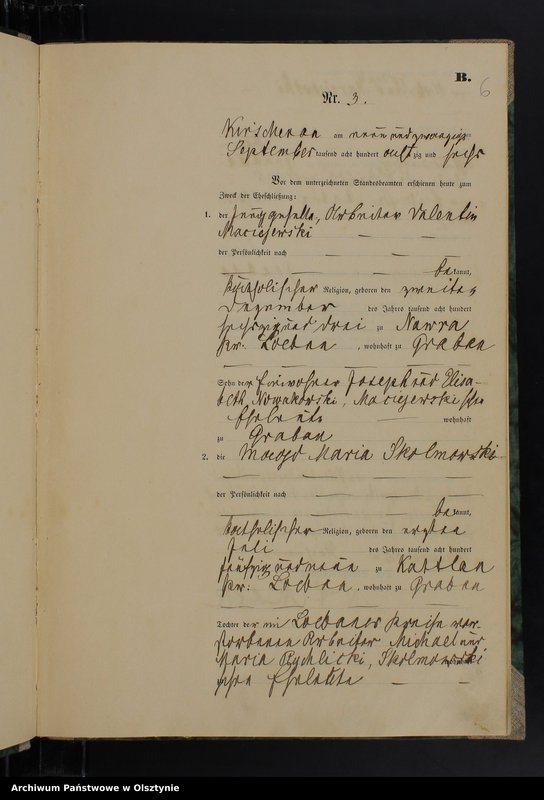 B.
6
Nr. 3.
Kirschenau am neun und zwanzigsten
September tausend acht hundert achtzig und sechs
Vor dem unterzeichneten Standesbeamten erschienen heute zum
Zweck der Eheschließung:
1. der Junggeselle, Arbeiter Valentin
Maciejewski
der Persönlichkeit nach
bekannt,
katholischer Religion, geboren den zweiten
Dezember des Jahres tausend acht hundert
sechszig und drei zu Nawra
Kr. Loebau, wohnhaft zu Grabau
Sohn der Einwohner Joseph und Elisa-
beth, Nowakowski, Maciejewski'schen
Eheleute wohnhaft
zu Grabau
2. die Magd Maria Skolmowski
der Persönlichkeit nach
bekannt,
katholischer Religion, geboren den ersten
Juli des Jahres tausend acht hundert
fünfzig und neun zu Kattlau
Kr. Loebau, wohnhaft zu Grabau
Tochter der im Loebauer Kreise ver-
storbenen Arbeiter Michael und
Maria Rychlicki, Skolmowski
schen Eheleute
Archiwum Państwowe w Olsztynie